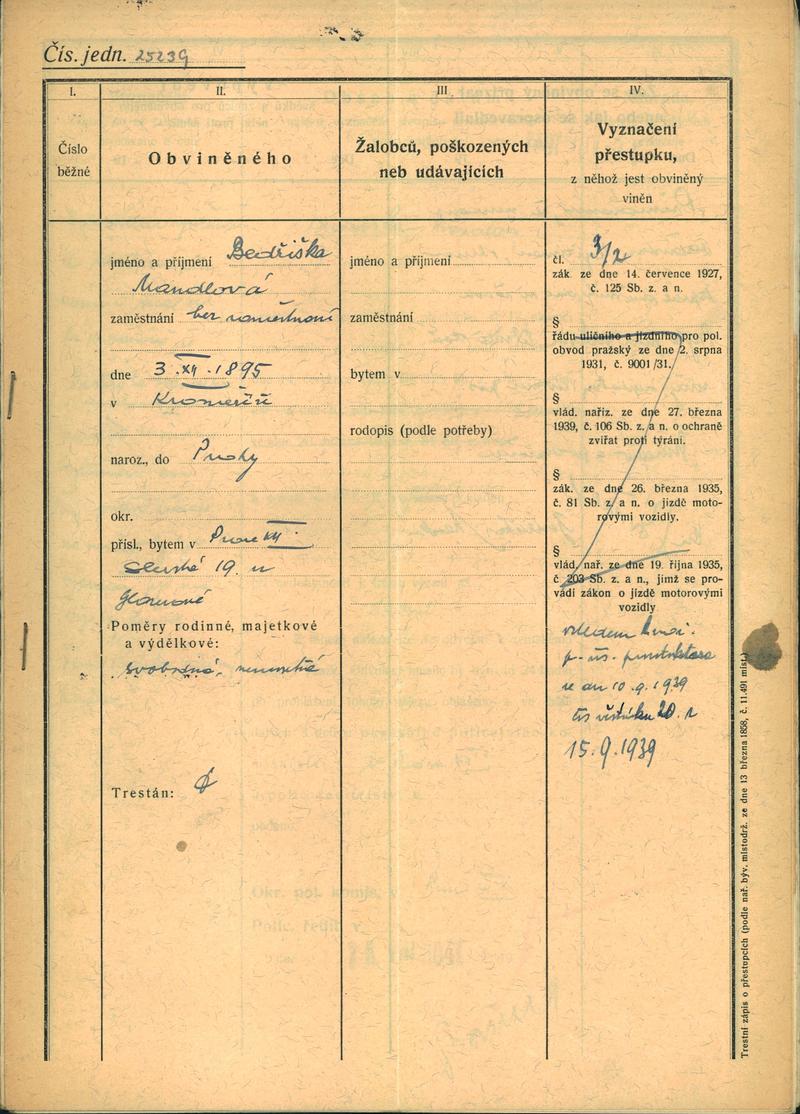 Čís. jedn. 25239
I.
Číslo
běžné
II.
Obviněného
III.
Žalobců, poškozených
neb udávajících
IV.
Vyznačení
přestupku,
z něhož jest obviněný
viněn
jméno a příjmení Bedřiška
Mandlová
zaměstnání bez zaměstnání
dne 3. XII. 1895
v Kroměříži
naroz., do Prahy
okr.
přísl., bytem v Praze XII.
19. u
Poměry rodinné, majetkové
a výdělkové:
svobodná, nemajetná
Trestán:
jméno a příjmení
zaměstnání
bytem v
rodopis (podle potřeby)
čl. 3/2
zák. ze dne 14. července 1927,
č. 125 Sb. z. a n.
§
řádu uličního a jízdního pro pol.
obvod pražský ze dne 2. srpna
1931, č. 9001/31.
§
vlád. naříz. ze dne 27. března
1939, č. 106 Sb. z. a n. o ochraně
zvířat proti týrání.
§
zák. ze dne 26. března 1935,
č. 81 Sb. z. a n. o jízdě moto-
rovými vozidly.
§
vlád. nař. ze dne 19. října 1935,
č. 203 Sb. z. a n., jímž se pro-
vádí zákon o jízdě motorovými
vozidly
ze dne 10.9.1939
čís věstníku 20. z
15.9.1939
Trestní zápis o přestupcích (podle nař. býv. místodrž. ze dne 13 března 1858, č. 11.491 míst.)